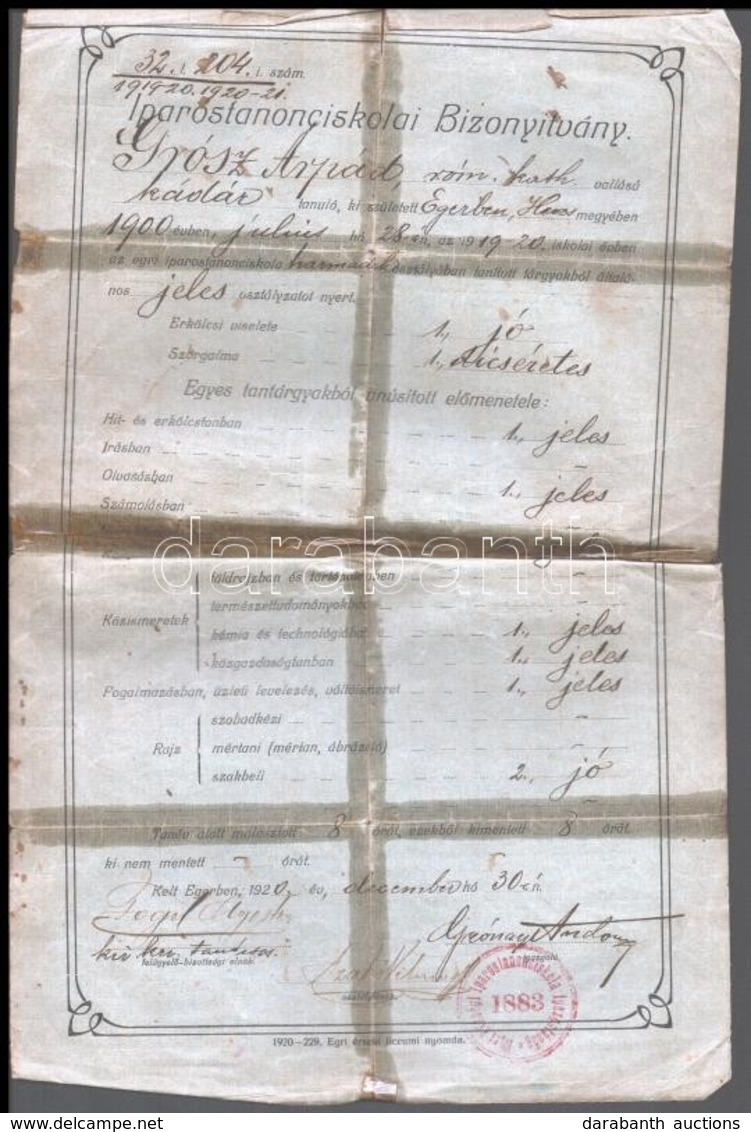 32. l. 204. t. szám.
1919-20. 1920-21.
Iparostanonciskolai Bizonyitvány.
Grósz Árpád, róm. kath. vallású
kádár tanuló, ki született Egerben, Heves megyében
1900 évben, július hó 28-án, az 1919-20. iskolai évben
az egri iparostanonciskola harmadik osztályában tanított tárgyakból általá-
nos jeles osztályzatot nyert.
Erkölcsi viselete 1., jó
Szorgalma 1., dicséretes
Egyes tantárgyakból tanúsított előmenetele:
Hit- és erkölcstanban 1., jeles
Irásban "
Olvasásban 1., jeles
Számolásban
darabanth
földrajzban és történelemben "
természettudományokban "
Közismeretek
kémia és technológiában 1., jeles
közgazdaságtanban 1., jeles
Fogalmazásban, üzleti levelezés, váltóismeret 1., jeles
szabadkézi "
Rajz mértani (mértan, ábrázoló) "
szakbeli 2., jó
Tanév alatt mulasztott 8 órát, ezekből kimentett 8 órát.
ki nem mentett - órát.
Kelt Egerben, 1920 év, december hó 30-án.
kir. ker. tanácsos.
felügyelő-bizottsági elnök.
igazgató.
osztályfőnök
1883
1920—229. Egri érseki liceumi nyomda.
darabanth auctions
darabanth auctions